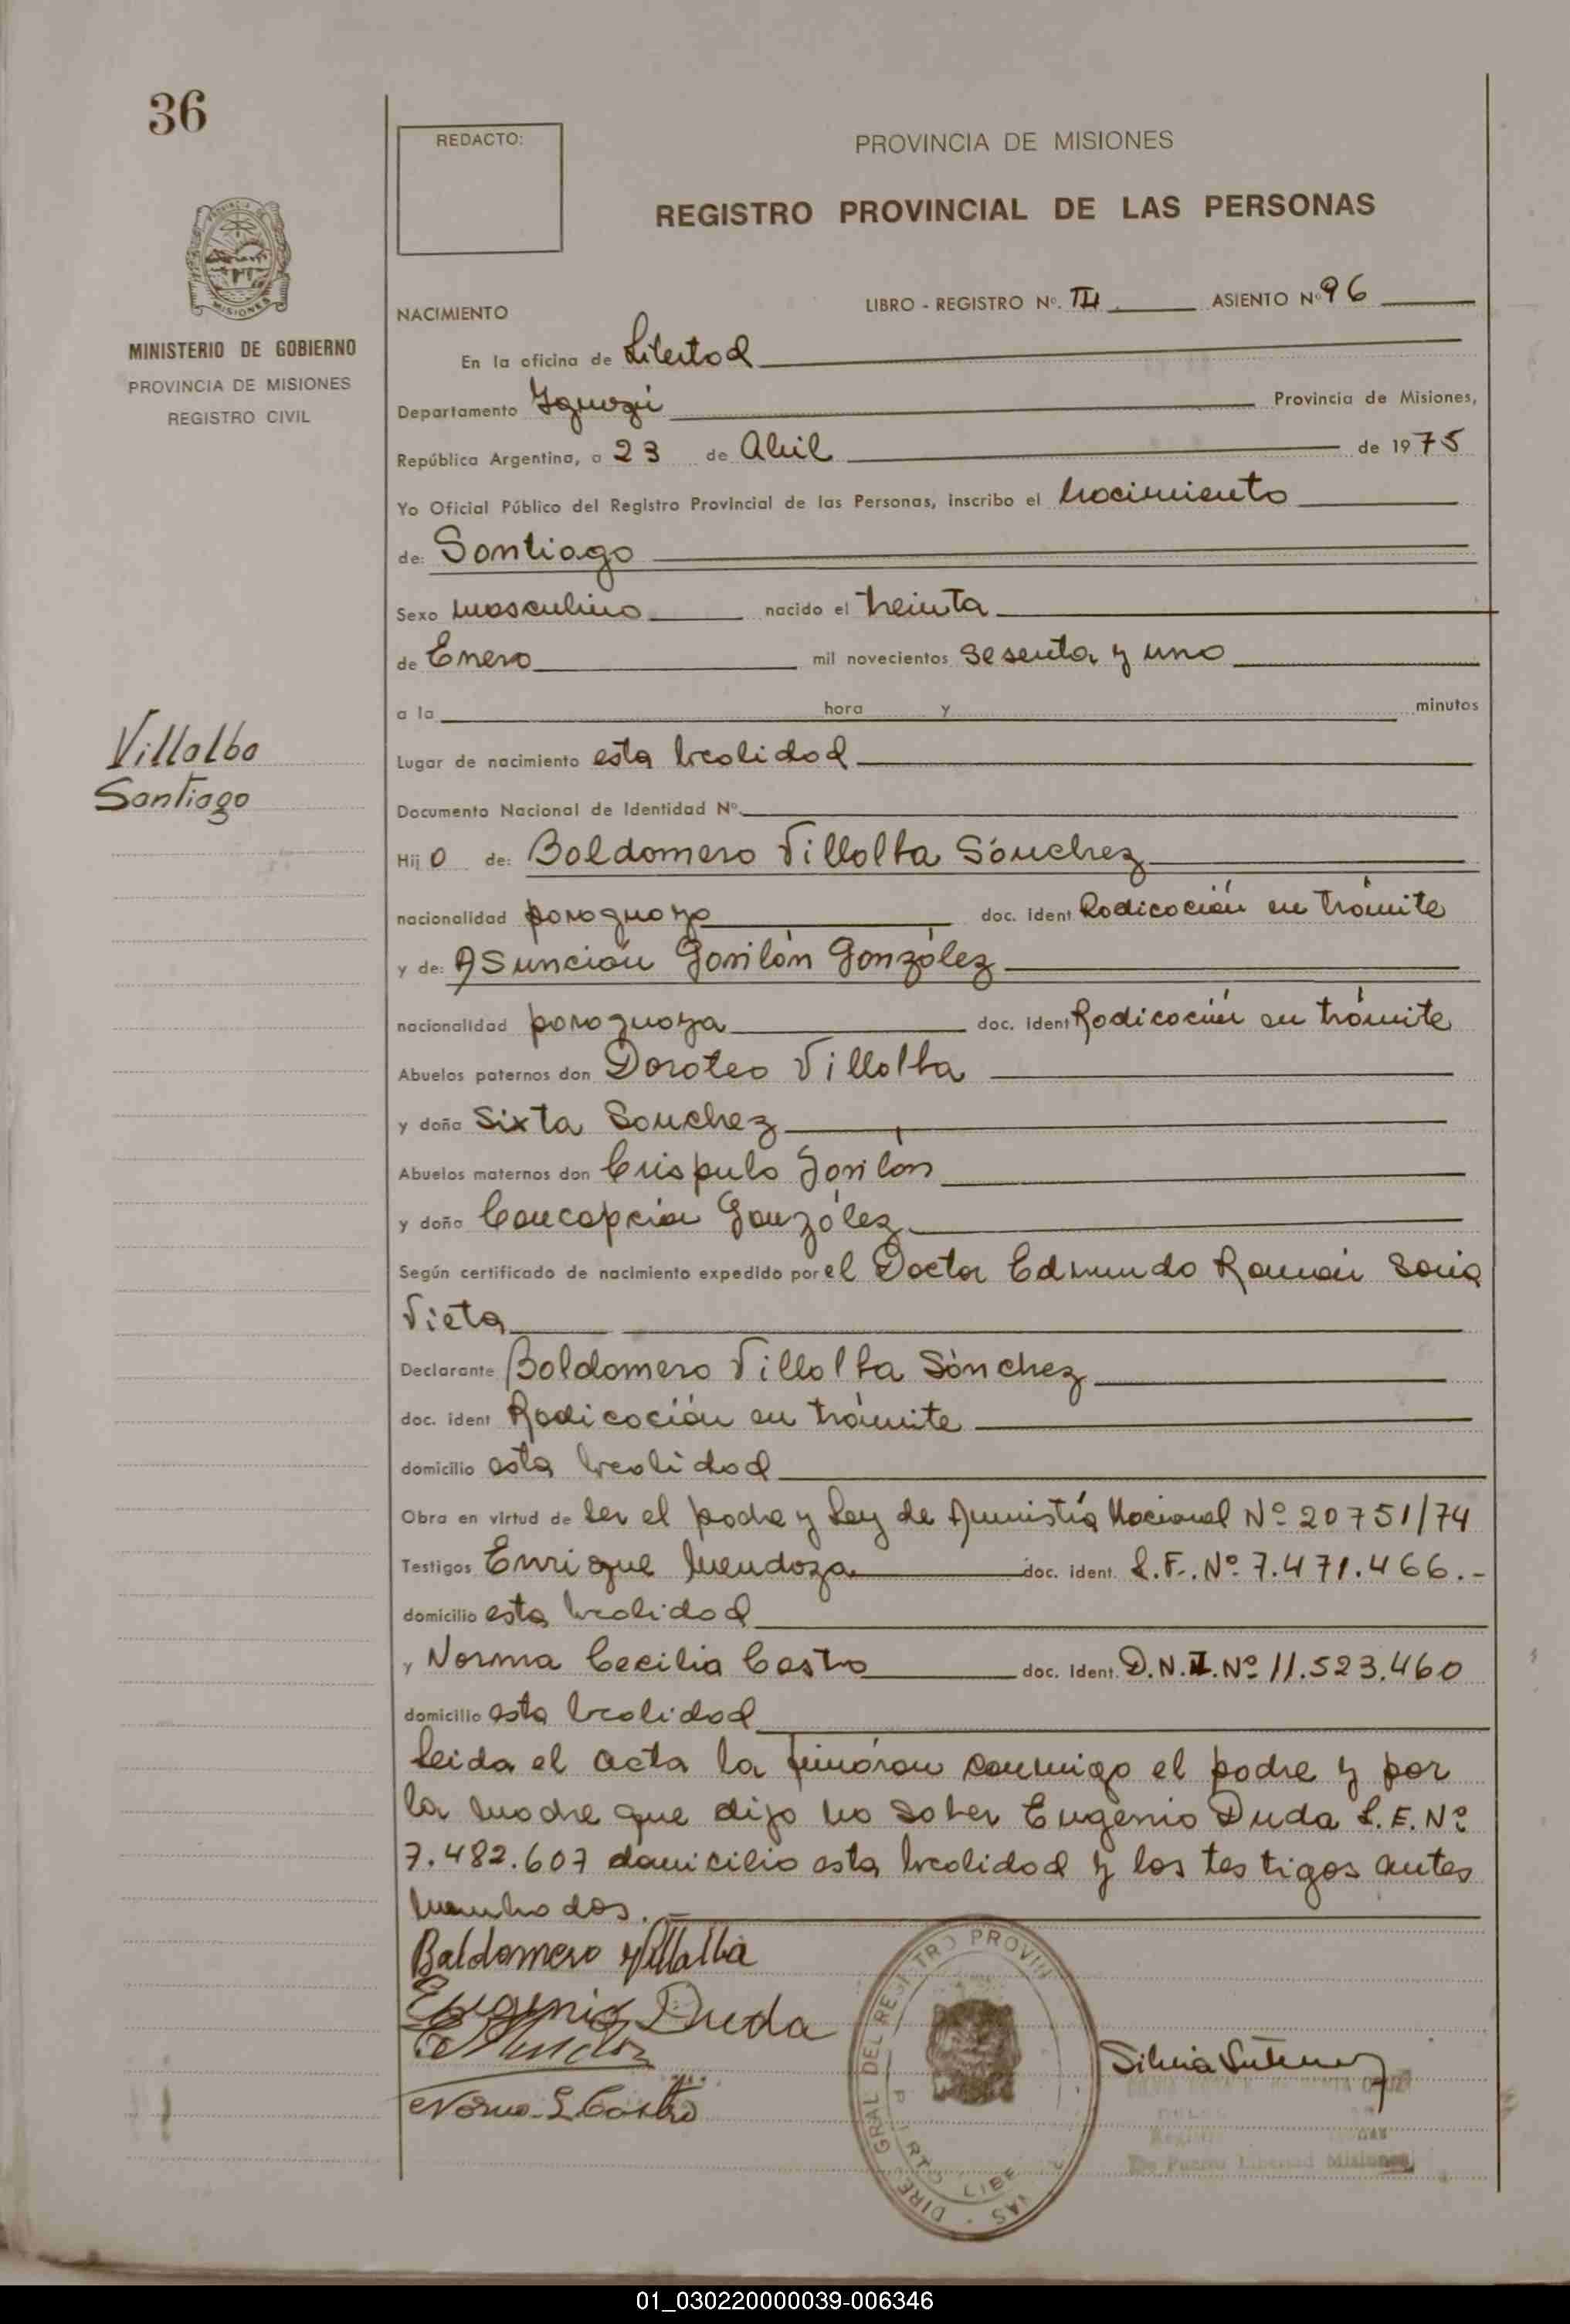 36
REDACTO:
PROVINCIA DE MISIONES
REGISTRO PROVINCIAL DE LAS PERSONAS
PROVINCIA DE
MISIONES
MINISTERIO DE GOBIERNO
PROVINCIA DE MISIONES
REGISTRO CIVIL
LIBRO - REGISTRO Nº. III ASIENTO Nº 96
NACIMIENTO
En la oficina de Libertad
Departamento Iguazú Provincia de Misiones,
República Argentina, a 23 de Abril de 1975
Yo Oficial Público del Registro Provincial de las Personas, inscribo el nacimiento
de: Santiago
Sexo masculino nacido el treinta
de Enero mil novecientos sesenta y uno
a la hora y minutos
Villalba
Santiago
Lugar de nacimiento esta localidad
Documento Nacional de Identidad Nº
Hij o de: Baldomero Villalba Sánchez
nacionalidad paraguaya doc. ident Radicación en trámite
y de: Asunción González
nacionalidad paraguaya doc. ident Radicación en trámite
Abuelos paternos don Doroteo Villalba
y doña Sixta Sanchez
Abuelos maternos don Crispulo
y doña Concepción González
Según certificado de nacimiento expedido por el Doctor Edmundo Ramón Soria
Vieta
Declarante Baldomero Villalba Sánchez
doc. ident Radicación en trámite
domicilio esta localidad
Obra en virtud de ser el padre y Ley de Amnistía Nacional Nº 20751/74
Testigos Enrique Mendoza doc. ident. L.E. Nº 7.471.466.-
domicilio esta localidad
y Norma Cecilia Castro doc. ident. D.N.I. Nº 11.523.460
domicilio esta localidad
Leida el acta la firmáron conmigo el padre y por
la madre que dijo no saber Eugenio Duda L.E. Nº
7.482.607 domicilio esta localidad y los testigos antes
nombrados.-
Baldomero Villalba
Eugenio Duda
Norma C. Castro
Silvia
DIRE GRAL DEL REGISTRO PROVIN
De Puerto Libertad Misiones
01_030220000039-006346